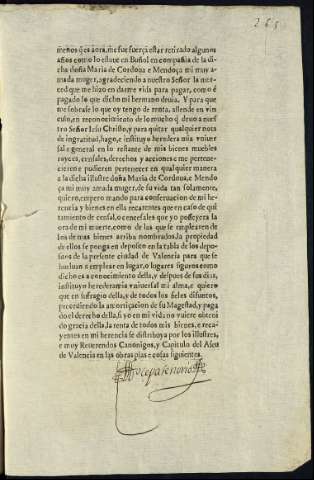 265
menos q̃ es aora, me fue força estar retirado algunos
años como lo estuue en Buñol en compañia de la di-
cha doña Maria de Cordoua e Mendoça mi muy a-
mada muger, agradeciendo a nuestro Señor la mer-
ced que me hizo en darme vida para pagar, como é
pagado lo que dicho mi hermano deuia. Y para que
me sobrasse lo que oy tengo de renta, allende en vin-
cuso, en reconocimiento de lo mucho q̃ deuo a nues-
tro Señor Iesu Christo, y para quitar qualquier nota
de ingratitud, hago, e instituyo heredera mia vniuer-
sal e general en lo restante de mis bienes muebles
rayces, censales, derechos y acciones a me pertene-
cientes e pudieren pertenecer en qualquier manera
a la dicha illustre doña Maria de Cordoua, e Mendo
ça mi muy amada muger, de su vida tan solamente,
quiero, empero mando para conseruacion de mi he-
rencia y bienes en ella recayentes que en caso de qui
tamiento de censal, o censales que yo posseyera la
ora de mi muerte, como de las que se emplearen de
los de mas bienes arriba nombrados, la propiedad
de ellos se ponga en deposito en la tabla de los depo-
sitos de la presente ciudad de Valencia para que se
bueluan a emplear en lugar, o lugares siguros como
dicho es a conocimiento della, y despues de sus dias,
instituyo heredera mia vniuersal mi alma, e quiero
que en sufragio della, y de todos los fieles difuntos,
precediendo la amortizacion de su Magestad, y paga
do el derecho della, si yo en mi vida no vuiere obteni
do gracia della, la renta de todos mis bienes, e reca-
yentes en mi herencia se distribuya por los illustres,
e muy Reuerendos Canonigos, y Capitulo del Aseu
de Valencia en las obras pias e cosas siguientes.